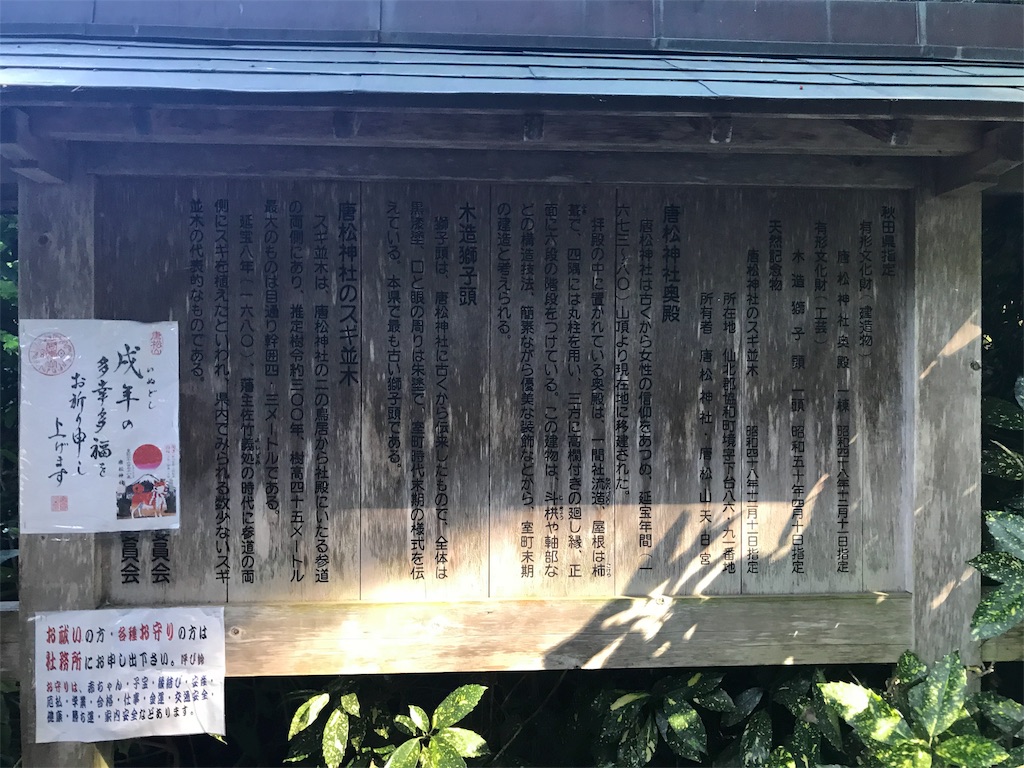 秋田県指定
有形文化財（建造物）
唐松神社奥殿 一棟 昭和四十八年十二月十一日指定
有形文化財（工芸）
木造獅子頭 一頭 昭和五十年四月十日指定
天然記念物
唐松神社のスギ並木 昭和四十八年十二月十一日指定
所在地 仙北郡協和町境字下台八六・九二番地
所有者 唐松神社・唐松山天日宮
唐松神社奥殿
唐松神社は古くから女性の信仰をあつめ、延宝年間（一
六七三〜八〇）山頂より現在地に移建された。
拝殿の中に置かれている奥殿は、一間社流造、屋根は杮
葺で、四隅には丸柱を用い、三方に高欄付きの廻し縁、正
面に六段の階段をつけている。この建物は、斗栱や軸部な
どの構造技法、簡素ながら優美な装飾などから、室町末期
の建造と考えられる。
木造獅子頭
獅子頭は、唐松神社に古くから伝来したもので、全体は
黒漆塗、口と眼の周りは朱塗で、室町時代末期の様式を伝
えている。本県で最も古い獅子頭である。
唐松神社のスギ並木
スギ並木は、唐松神社の二の鳥居から社殿にいたる参道
の両側にあり、推定樹令約三〇〇年、樹高四十五メートル
最大のものは目通り幹囲四・三メートルである。
延宝八年（一六八〇）、藩主佐竹義処の時代に参道の両
側にスギを植えたといわれ、県内でみられる数少ないスギ
並木の代表的なものである。
委員会
委員会
いぬどし
戌年の
多幸多福を
お祈り申し
上げます
お祓いの方・各種お守りの方は
社務所にお申し出下さい。呼び鈴
お守りは、赤ちゃん・子宝・縁結び・安産・
厄払・学業・合格・仕事・金運・交通安全・
健康・勝ち運・家内安全などあります。